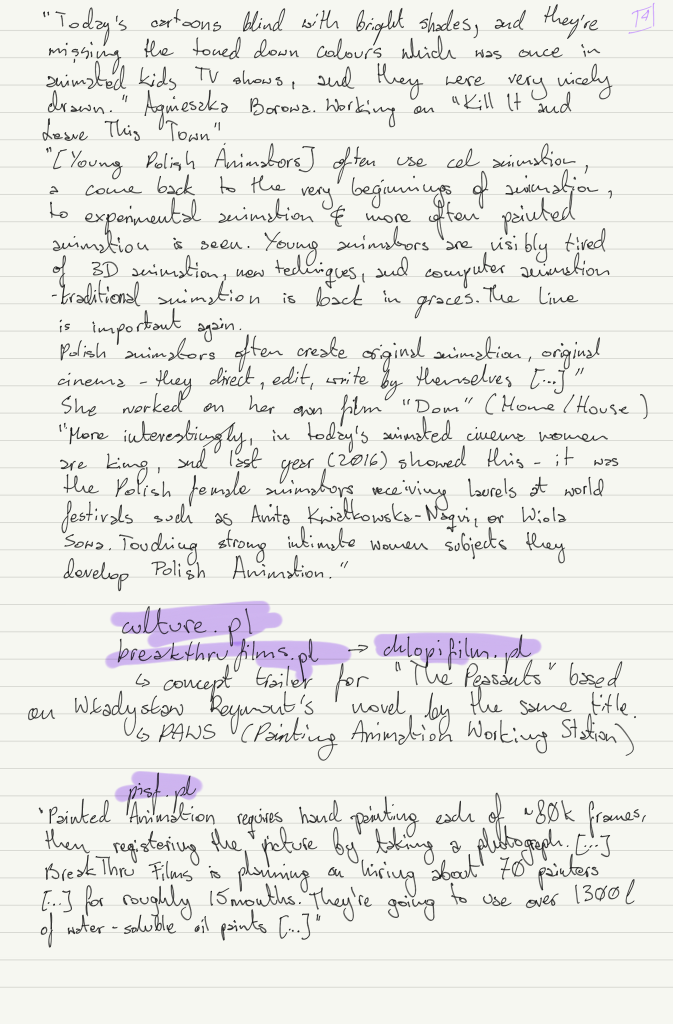 "Today's cartoons blind with bright shades, and they're
T4
missing the toned down colours which was once in
animated kids TV shows, and they were very nicely
drawn." Agnieszka Borowa. Working on "Kill It and
Leave This Town"
"[Young Polish Animators] often use cel animation,
a come back to the very beginnings of animation,
to experimental animation & more often painted
animation is seen. Young animators are visibly tired
of 3D animation, new techniques, and computer animation
- traditional animation is back in graces. The line
is important again.
Polish animators often create original animation, original
cinema - they direct, edit, write by themselves [...]"
She worked on her own film "Dom" (Home/House)
"More interestingly, in today's animated cinema women
are king, and last year (2016) showed this - it was
the Polish female animators receiving laurels at world
festivals such as Anita Kwiatkowska-Naqvi, or Wiola
Sowa. Touching strong intimate women subjects they
develop Polish Animation."
culture.pl
breakthrufilms.pl → chlopifilm.pl
↳ concept trailer for "The Peasants" based
on Władysław Reymont's novel by the same title.
↳ PAWS (Painting Animation Working Station)
pisf.pl
"Painted Animation requires hand painting each of ~80k frames,
then registering the picture by taking a photograph. [...]
BreakThru Films is planning on hiring about 70 painters
[...] for roughly 15 months. They're going to use over 1300l
of water-soluble oil paints [...]"